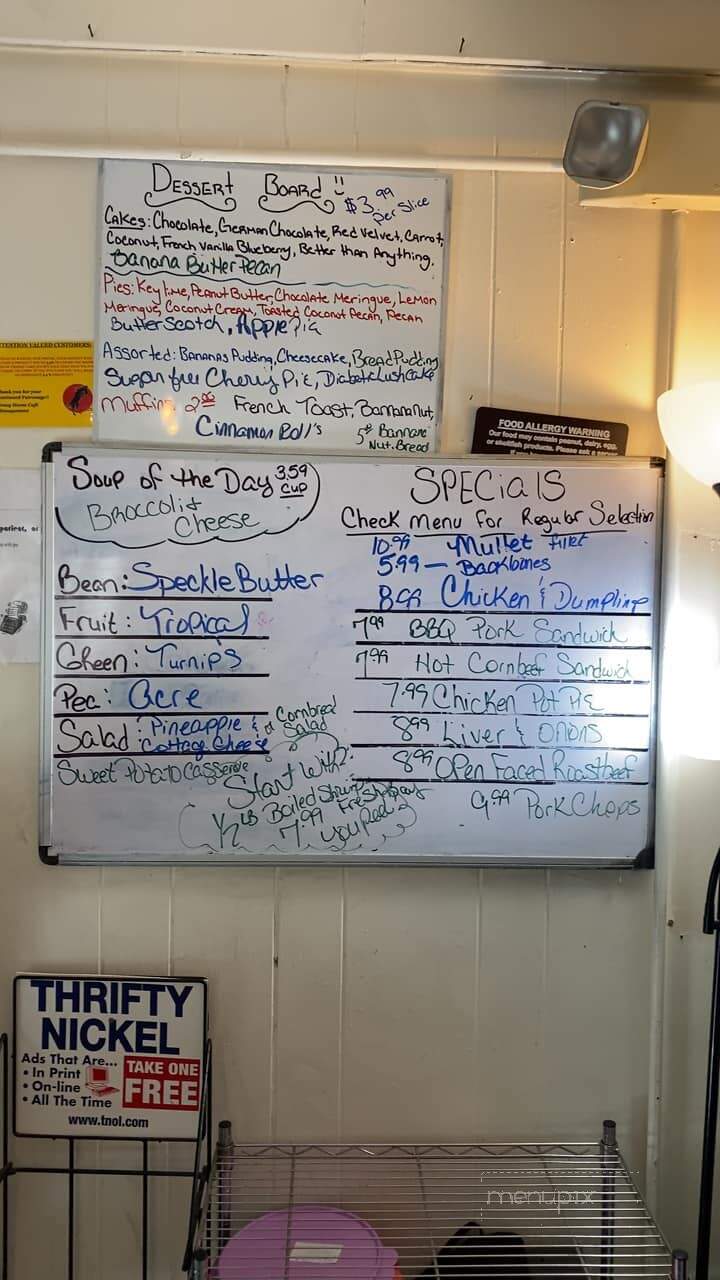 DESSERT BOARD !!
$3.99 per slice
Cakes: Chocolate, German Chocolate, Red Velvet, Carrot,
Coconut, French Vanilla Blueberry, Better than Anything,
Banana Butter Pecan
Pies: Key lime, Peanut Butter, Chocolate Meringue, Lemon
Meringue, Coconut Cream, Toasted Coconut Pecan, Pecan
Butterscotch, Apple Pie
Assorted: Bananas Pudding, Cheesecake, Bread Pudding
Sugar free Cherry Pie, Diabetic Lush Cake
Muffins 2.00 French Toast, Bannana Nut,
Cinnamon Roll's
Bannana
Nut. Bread
ATTENTION VALUED CUSTOMERS
FOOD ALLERGY WARNING
Our food may contain peanut, dairy, egg,
or shellfish products. Please ask
Soup of the Day 3.59 cup
Broccoli & Cheese
Bean: Speckle Butter
Fruit: Tropical
Green: Turnips
Pea: Acre
Salad: Pineapple & Cottage Cheese
or Cornbread Salad
Sweet Potato Casserole
Start With:
1/2 LB Boiled Shrimp
7.99 you peel
SPECiALS
Check menu for Regular Selection
10.99 Mullet filet
5.99 — Backbones
8.99 Chicken & Dumplings
7.99 BBQ Pork Sandwich
7.99 Hot Cornbeef Sandwich
7.99 Chicken Pot Pie
8.99 Liver & Onions
8.99 Open Faced Roastbeef
9.99 Pork Chops
THRIFTY
NICKEL
Ads That Are...
• In Print
• On-line
• All The Time
TAKE ONE
FREE
www.tnol.com
menupix